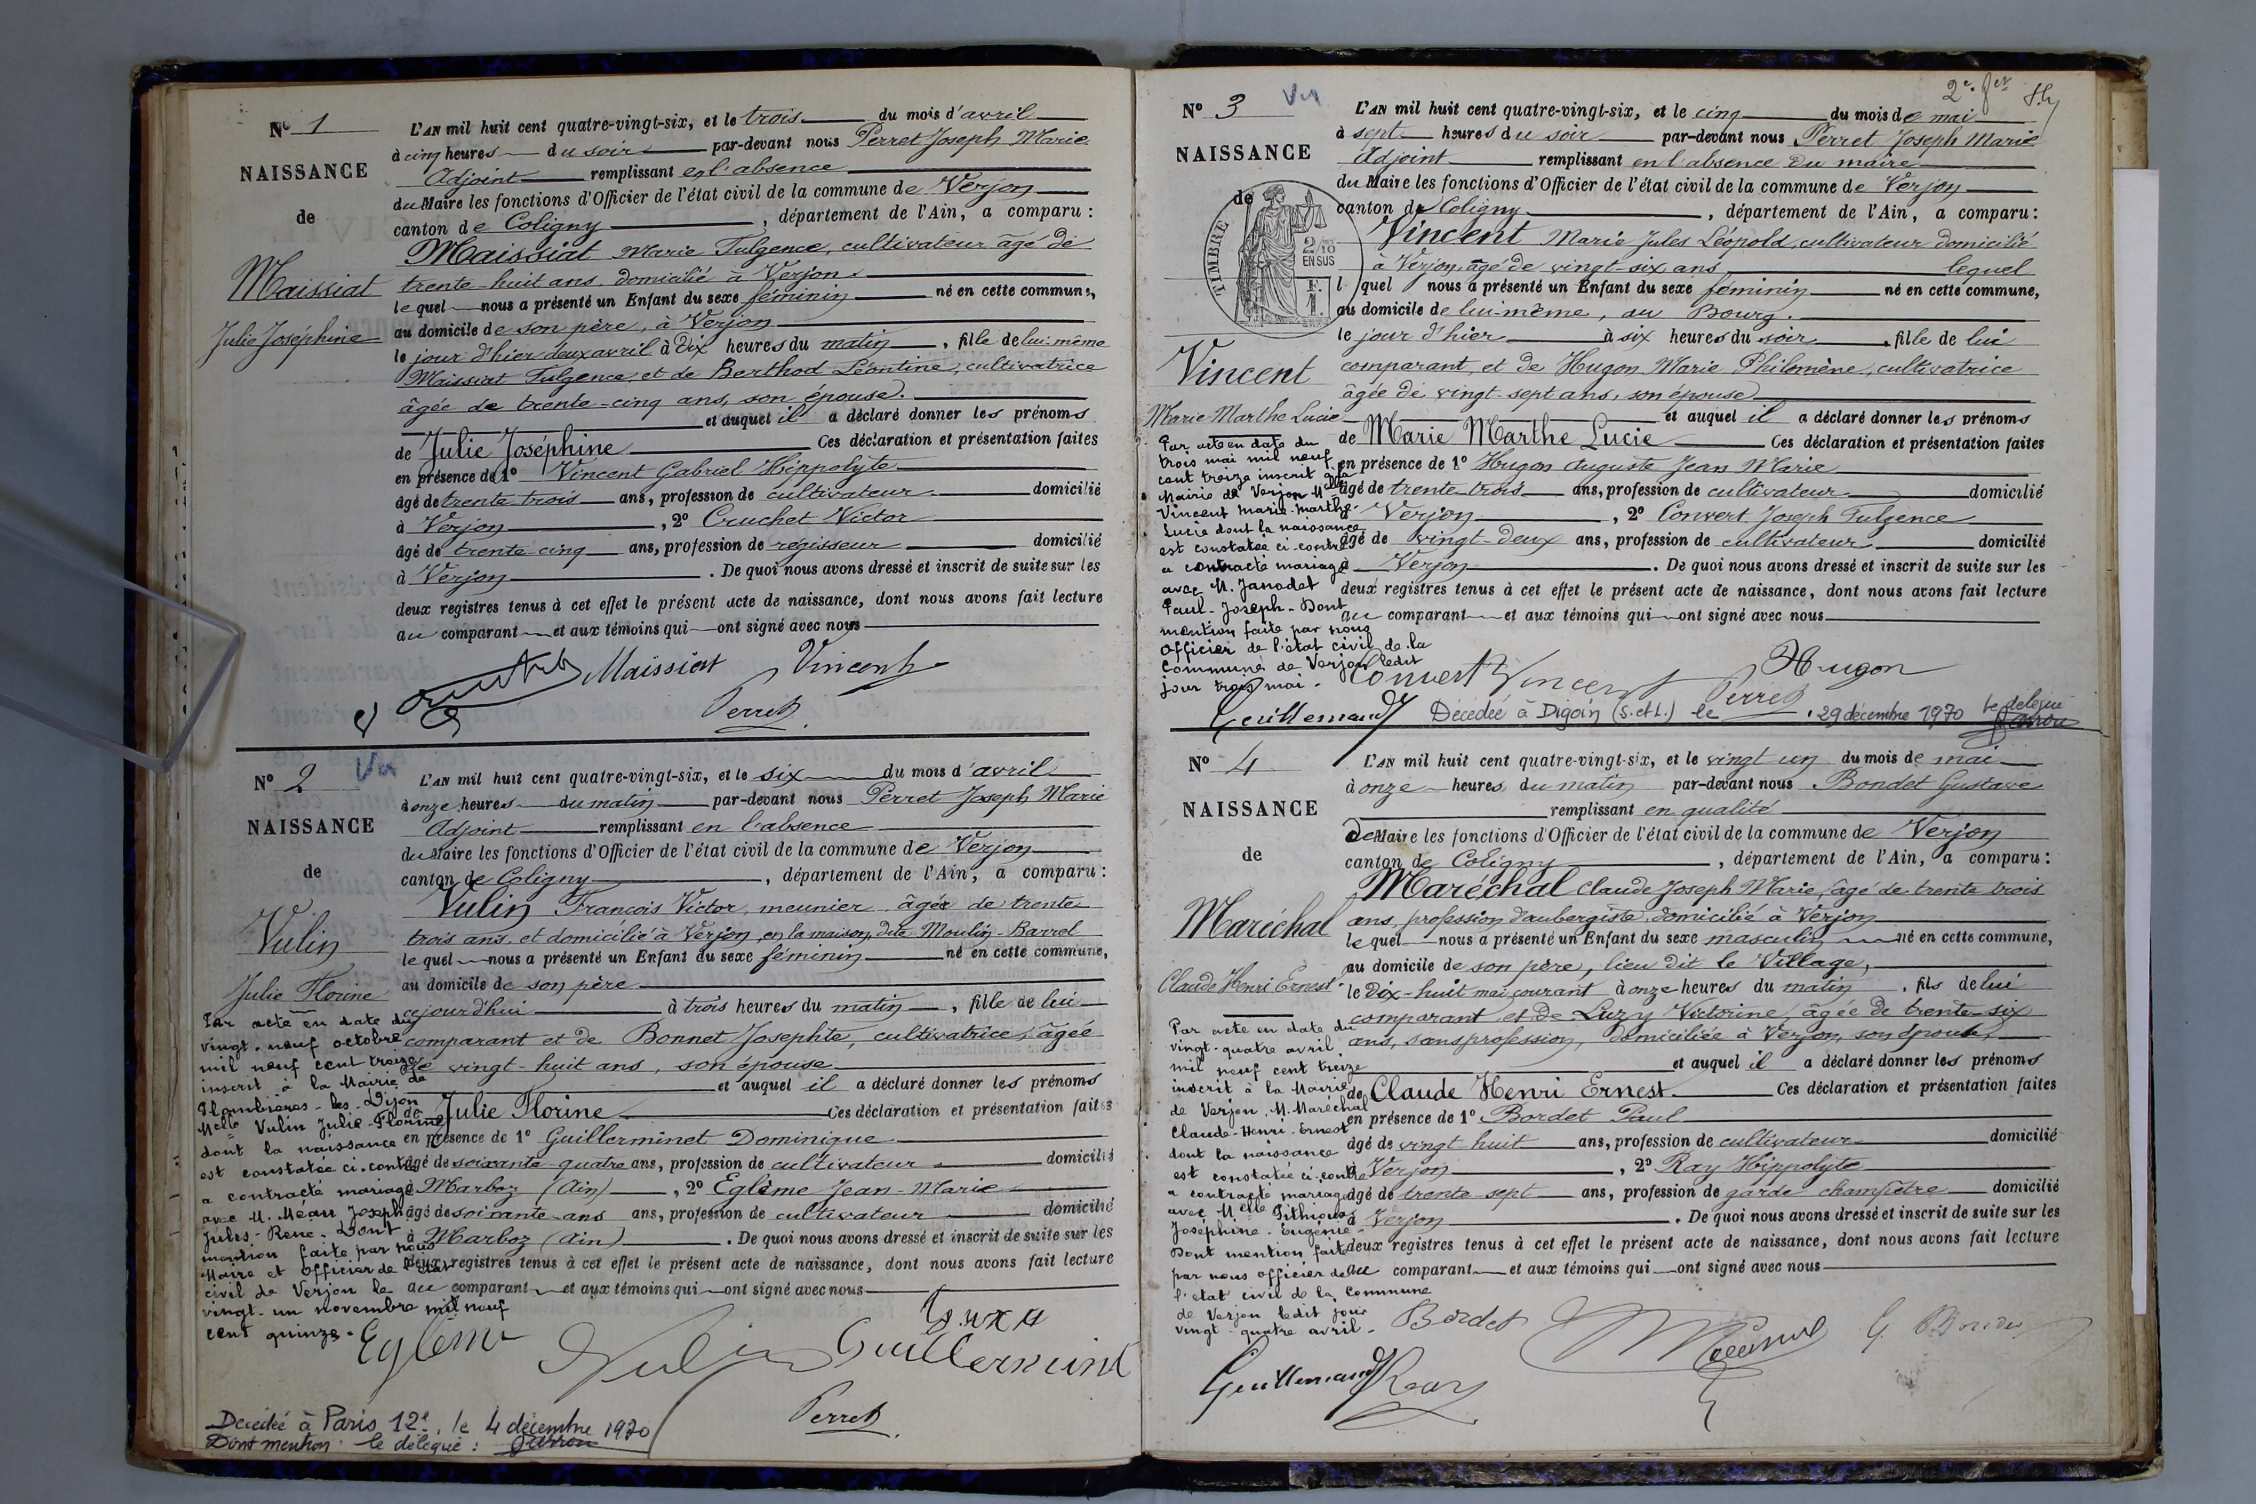 N° 1
NAISSANCE
de
Maissiat
Julie Joséphine
L'AN mil huit cent quatre-vingt-six, et le trois du mois d'avril
à cinq heures du soir par-devant nous Perret Joseph Marie
Adjoint remplissant en l'absence
du Maire les fonctions d'Officier de l'état civil de la commune de Verjon
canton de Coligny, département de l'Ain, a comparu :
Maissiat Marie Fulgence, cultivateur âgé de
trente-huit ans domicilié à Verjon
lequel nous a présenté un Enfant du sexe féminin né en cette commune,
au domicile de son père, à Verjon
le jour d'hier deux avril à dix heures du matin, fille de lui-même
Maissiat Fulgence, et de Berthod Léontine, cultivatrice
âgée de trente-cinq ans, son épouse.
et auquel il a déclaré donner les prénoms
de Julie Joséphine Ces déclaration et présentation faites
en présence de 1° Vincent Gabriel Hippolyte
âgé de trente trois ans, profession de cultivateur domicilié
à Verjon, 2° Cruchet Victor
âgé de trente-cinq ans, profession de régisseur domicilié
à Verjon. De quoi nous avons dressé et inscrit de suite sur les
deux registres tenus à cet effet le présent acte de naissance, dont nous avons fait lecture
au comparant et aux témoins qui ont signé avec nous
Maissiat Vincent
Perret
N° 2 Vu
NAISSANCE
de
Vulin
Julie Florine
Par acte en date du
vingt-neuf octobre
mil neuf cent treize
inscrit à la Mairie de
Plombières-les-Dijon
Melle Vulin Julie-Florine
dont la naissance
est constatée ci-contre
a contracté mariage
avec M. Méau Joseph
Jules-René. Dont
mention faite par nous
Maire et officier de l'état
civil de Verjon le
vingt-un novembre mil neuf
cent quinze.
L'AN mil huit cent quatre-vingt-six, et le six du mois d'avril
à onze heures du matin par-devant nous Perret Joseph Marie
Adjoint remplissant en l'absence
du Maire les fonctions d'Officier de l'état civil de la commune de Verjon
canton de Coligny, département de l'Ain, a comparu :
Vulin François Victor, meunier âgé de trente
trois ans, et domicilié à Verjon, en la maison dite Moulin-Barrel
lequel nous a présenté un Enfant du sexe féminin né en cette commune,
au domicile de son père
cejourd'hui à trois heures du matin, fille de lui
comparant et de Bonnet Josephte, cultivatrice, âgée
de vingt-huit ans, son épouse
et auquel il a déclaré donner les prénoms
de Julie Florine Ces déclaration et présentation faites
en présence de 1° Guillerminet Dominique
âgé de soixante-quatre ans, profession de cultivateur domicilié
à Marboz (Ain), 2° Eglême Jean-Marie
âgé de soixante ans ans, profession de cultivateur domicilié
à Marboz (Ain). De quoi nous avons dressé et inscrit de suite sur les
deux registres tenus à cet effet le présent acte de naissance, dont nous avons fait lecture
au comparant et aux témoins qui ont signé avec nous
Eglême Vulin Guillerminet
Perret
Décédée à Paris 12e, le 4 décembre 1970
Dont mention le délégué :
2e
N° 3 Vu
NAISSANCE
de
TIMBRE
2/10
EN SUS
F.
1.
Vincent
Marie Marthe Lucie
Par acte en date du
trois mai mil neuf
cent treize inscrit à la
Mairie de Verjon Melle
Vincent Marie-Marthe-
Lucie dont la naissance
est constatée ci-contre
a contracté mariage
avec M. Janodet
Paul-Joseph-Dont
mention faite par nous
officier de l'état civil de la
Commune de Verjon ledit
jour trois mai.
L'AN mil huit cent quatre-vingt-six, et le cinq du mois de mai
à sept heures du soir par-devant nous Perret Joseph Marie
Adjoint remplissant en l'absence du maire
du Maire les fonctions d'Officier de l'état civil de la commune de Verjon
canton de Coligny, département de l'Ain, a comparu :
Vincent Marie Jules Léopold, cultivateur domicilié
à Verjon, âgé de vingt-six ans lequel
l quel nous a présenté un Enfant du sexe féminin né en cette commune,
au domicile de lui-même, au Bourg.
le jour d'hier à six heures du soir, fille de lui
comparant, et de Hugon Marie Philomène, cultivatrice
âgée de vingt-sept ans, son épouse
et auquel il a déclaré donner les prénoms
de Marie Marthe Lucie Ces déclaration et présentation faites
en présence de 1° Hugon Auguste Jean Marie
âgé de trente-trois ans, profession de cultivateur domicilié
à Verjon, 2° Convert Joseph Fulgence
âgé de vingt-deux ans, profession de cultivateur domicilié
à Verjon. De quoi nous avons dressé et inscrit de suite sur les
deux registres tenus à cet effet le présent acte de naissance, dont nous avons fait lecture
au comparant et aux témoins qui ont signé avec nous
Convert Vincent Perret Hugon
Guillemaud Décédée à Digoin (S.et L.) le 29 décembre 1970 le délégué
N° 4
NAISSANCE
de
Maréchal
Claude Henri Ernest
Par acte en date du
vingt-quatre avril
mil neuf cent treize
inscrit à la Mairie
de Verjon, M. Maréchal
Claude-Henri-Ernest
dont la naissance
est constatée ci-contre
a contracté mariage
avec Melle Pithioud
Joséphine-Eugénie-
Dont mention faite
par nous officier de
l'état civil de la Commune
de Verjon ledit jour
vingt-quatre avril.
L'AN mil huit cent quatre-vingt-six, et le vingt un du mois de mai
à onze heures du matin par-devant nous Bondet Gustave
remplissant en qualité
de Maire les fonctions d'Officier de l'état civil de la commune de Verjon
canton de Coligny, département de l'Ain, a comparu :
Maréchal Claude Joseph Marie, âgé de trente trois
ans, profession d'aubergiste, domicilié à Verjon
lequel nous a présenté un Enfant du sexe masculin né en cette commune,
au domicile de son père, lieu dit le Village,
le dix-huit mai courant à onze heures du matin, fils de lui
comparant et de Luzy Victorine, âgée de trente-six
ans, sans profession, domiciliée à Verjon, son épouse,
et auquel il a déclaré donner les prénoms
de Claude Henri Ernest Ces déclaration et présentation faites
en présence de 1° Bordet Paul
âgé de vingt-huit ans, profession de cultivateur domicilié
à Verjon, 2° Ray Hippolyte
âgé de trente-sept ans, profession de garde champêtre domicilié
à Verjon. De quoi nous avons dressé et inscrit de suite sur les
deux registres tenus à cet effet le présent acte de naissance, dont nous avons fait lecture
au comparant et aux témoins qui ont signé avec nous
Bordet Maréchal G. Bondet
Guillemaud Ray